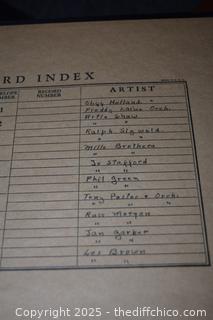 RD INDEX
ELOPE
MBER
RECORD
NUMBER
ARTIST
1
Cliff Holland &
Freddy Laine Orch.
2
Artie Shaw
" "
Ralph Sigwald
" "
Mills Brothers
" "
Jo Stafford
" "
Phil Green
" "
Tony Pastor & Orch.
" "
Russ Morgan
" "
Jan Garber
" "
Les Brown
" "
Copyright 2025 - thedifficchi.com